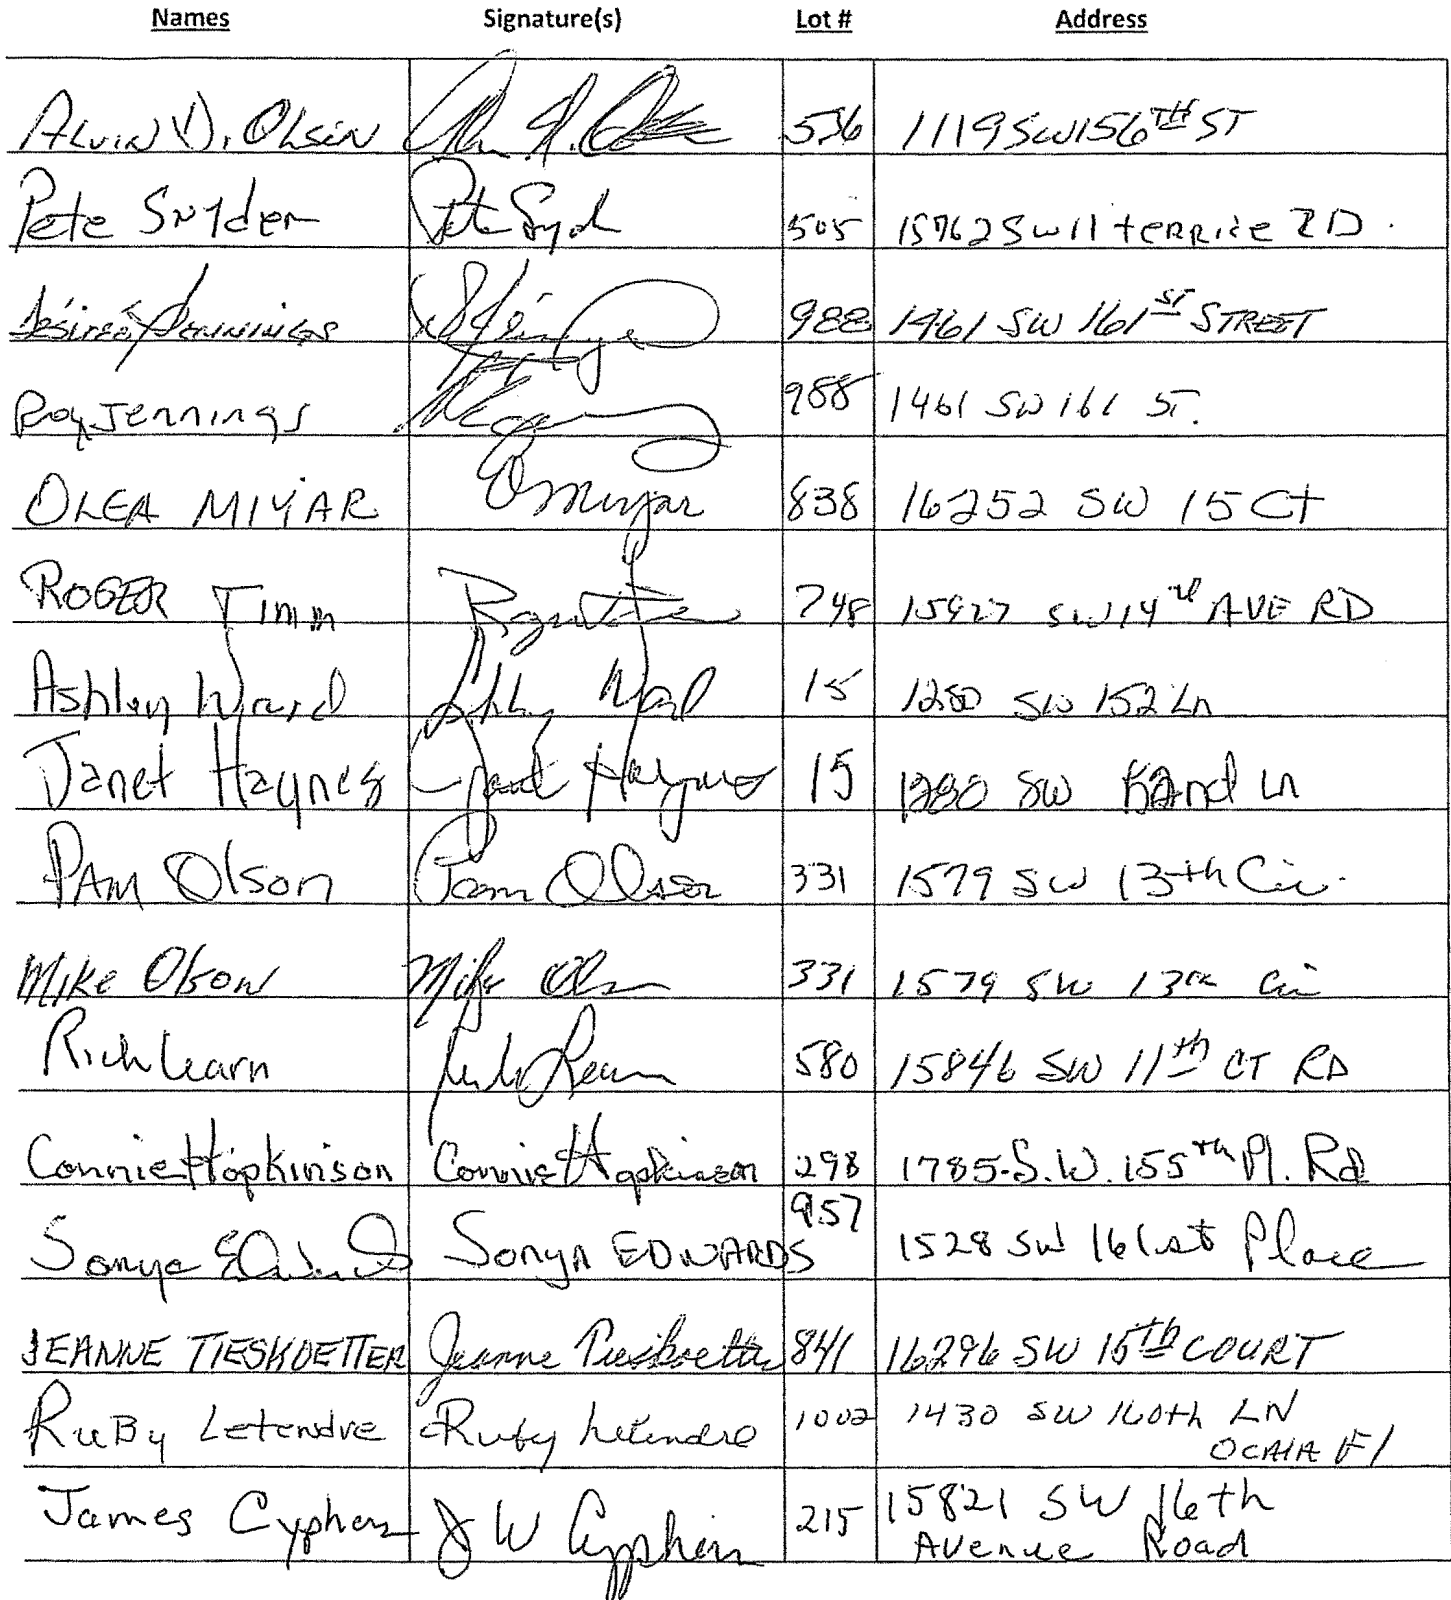 Names Signature(s) Lot # Address
ALVIN D. OLSEN 536 1119 SW 156TH ST
Pete Snyder Pete Snyder 505 15762 SW 11 terrice RD.
Jennings 988 1461 SW 161ST STREET
Roy Jennings 988 1461 SW 161 ST.
OLGA MIYAR O Miyar 838 16252 SW 15 Ct
ROGER Timm Roger Timm 748 15927 SW 14th AVE RD
Ashley Ward Ashley Ward 15 1280 SW 152 Ln
Janet Haynes Janet Haynes 15 1280 SW 152nd Ln
PAM Olson Pam Olson 331 1579 SW 13th Cir.
MIKE Olson Mike Olson 331 1579 SW 13th Cir
Rich Learn Rich Learn 580 15846 SW 11th CT RD
Connie Hopkinson Connie Hopkinson 298 1785 S.W. 155th Pl. Rd
Sonya Edwards Sonya EDWARDS 957 1528 SW 161st Place
JEANNE TIESKOETTER Jeanne Tieskoetter 841 16296 SW 15th COURT
RuBy Letendre Ruby Letendre 1002 1430 SW 160th LN
OCALA Fl
James Cyphers J W Cyphers 215 15821 SW 16th
Avenue Road